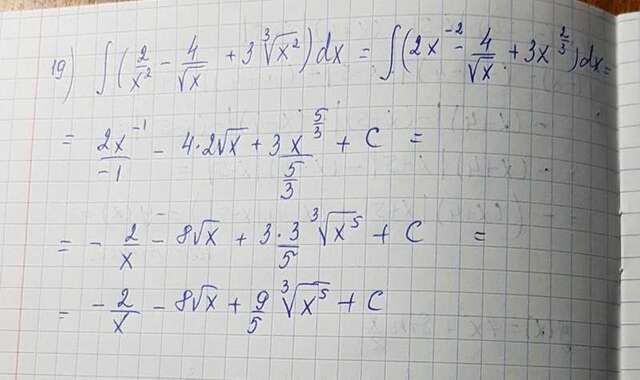 19) ∫(2/x² - 4/√x + 3∛x²)dx = ∫(2x⁻² - 4/√x + 3x^(2/3))dx =
= 2x⁻¹/-1 - 4·2√x + 3x^(5/3)/(5/3) + C =
= - 2/x - 8√x + 3·3/5 ∛x⁵ + C =
= -2/x - 8√x + 9/5 ∛x⁵ + C